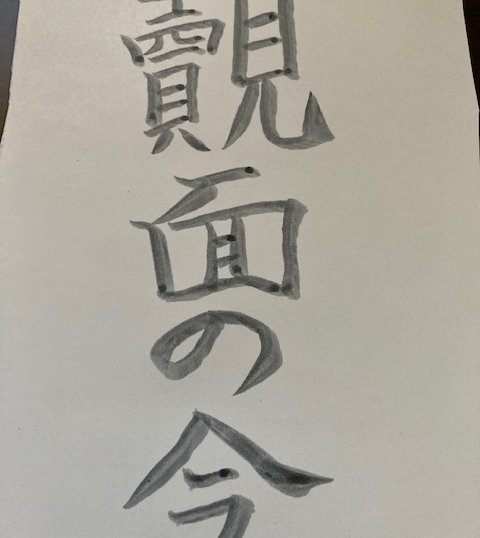 覿面の今